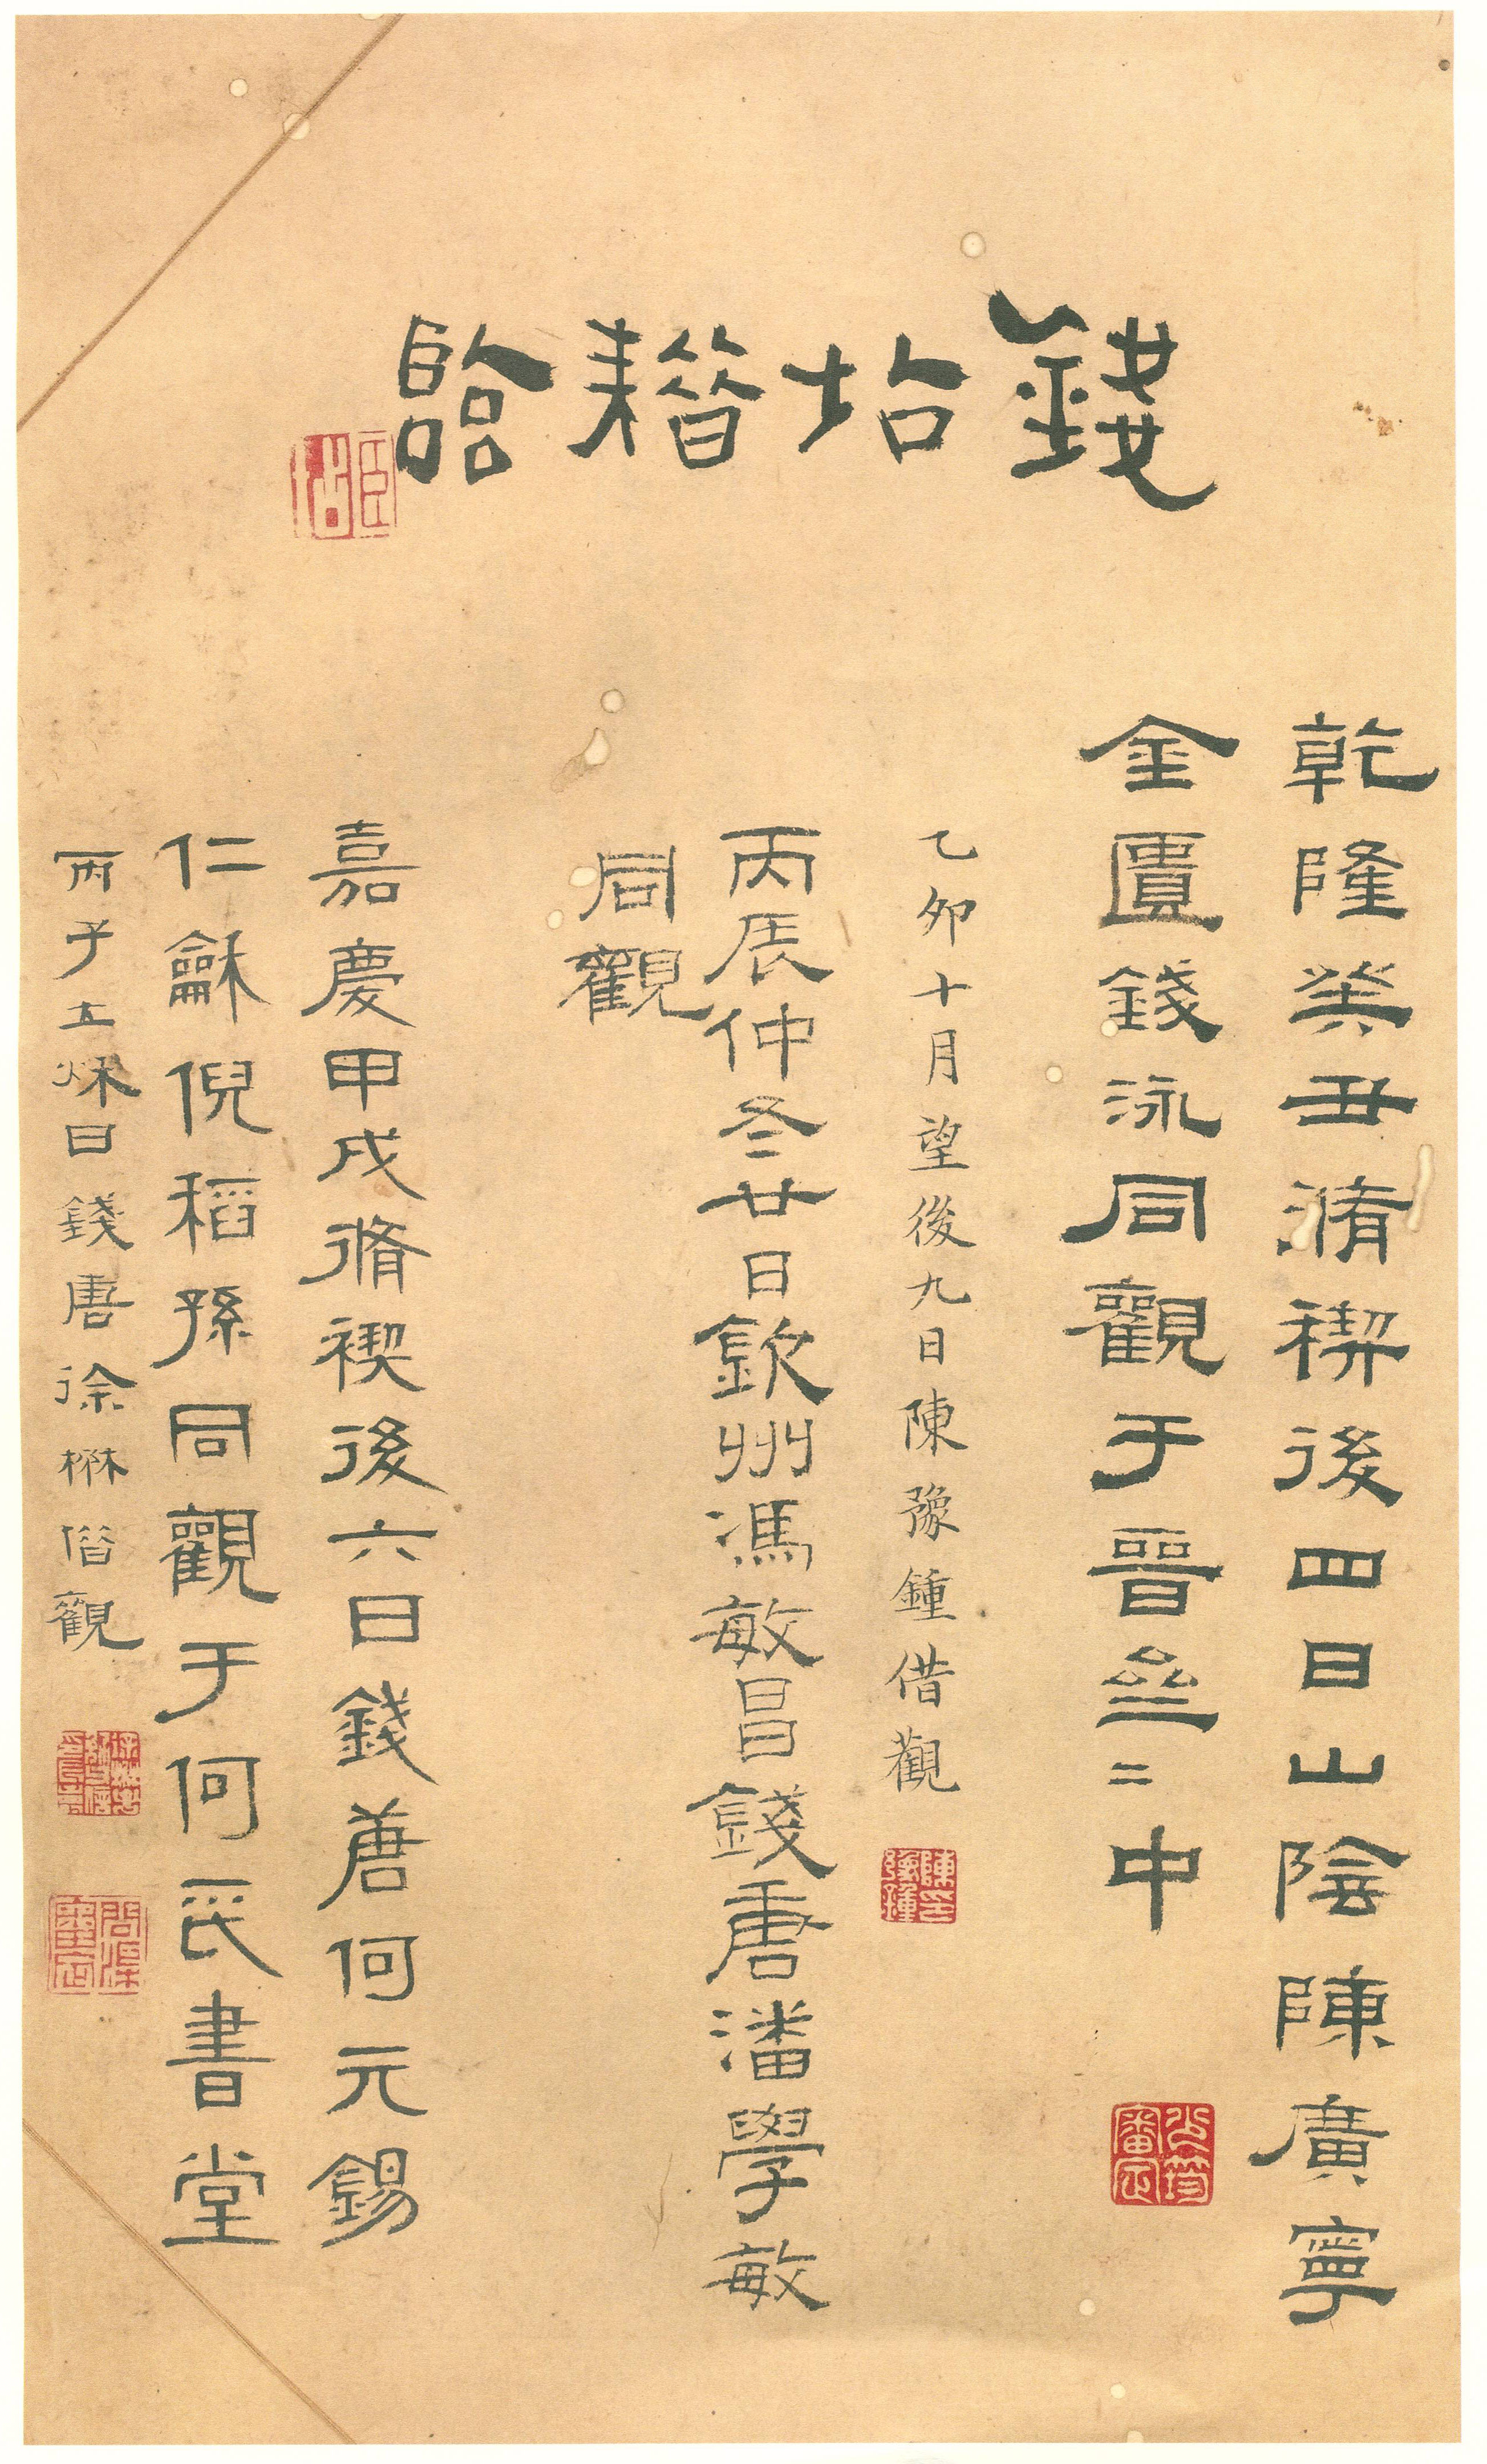 錢坫耤臨
臣坫
乾隆癸丑脩禊後四日山陰陳廣寧
金匱錢泳同觀于晉亝二中
乙卯十月望後九日陳豫鍾借觀
陳印豫鍾
丙辰仲冬廿日欽州馮敏昌錢唐潘學敏
同觀
嘉慶甲戌脩禊後六日錢唐何元錫
仁龢倪稻孫同觀于何氏書堂
丙子立秌日錢唐徐楙借觀
問渠審定